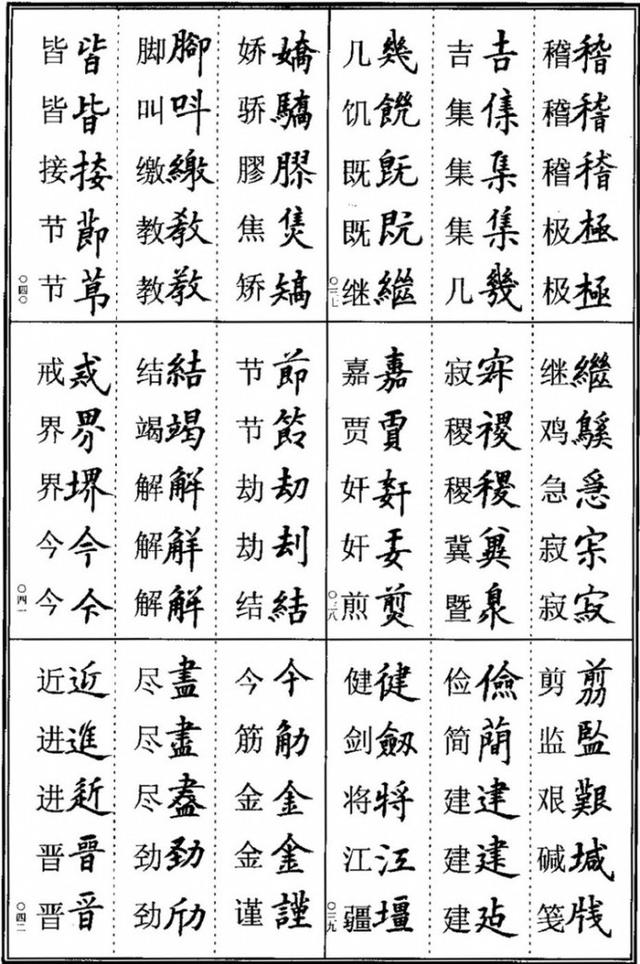 稽稽 稽稽 稽稽 极極 极極
吉吉 集㑫 集集 集集 几幾
几幾 饥饑 既旣 既既 继繼
〇三七
继繼 鸡鷄 急急 寂㝛 寂寂
寂寂 稷禝 稷稷 冀兾 暨暨
嘉嘉 贾賈 奸奸 奸奸 煎煎
〇三八
剪剪 监監 艰艱 碱堿 笺牋
俭儉 简蕳 建建 建建 建建
健徤 剑劔 将将 江江 疆壃
〇三九
娇嬌 骄驕 膠膠 焦焦 矫矯
脚腳 叫呌 缴繳 教教 教教
皆皆 皆皆 接接 节節 节莭
〇四〇
节節 节節 劫刼 劫刦 结結
结結 竭竭 解解 解觧 解解
戒戒 界界 界堺 今今 今今
〇四一
今今 筋筋 金金 金金 谨謹
尽盡 尽盡 尽盡 劲劲 劲劲
近近 进進 进進 晋晉 晋晋
〇四二